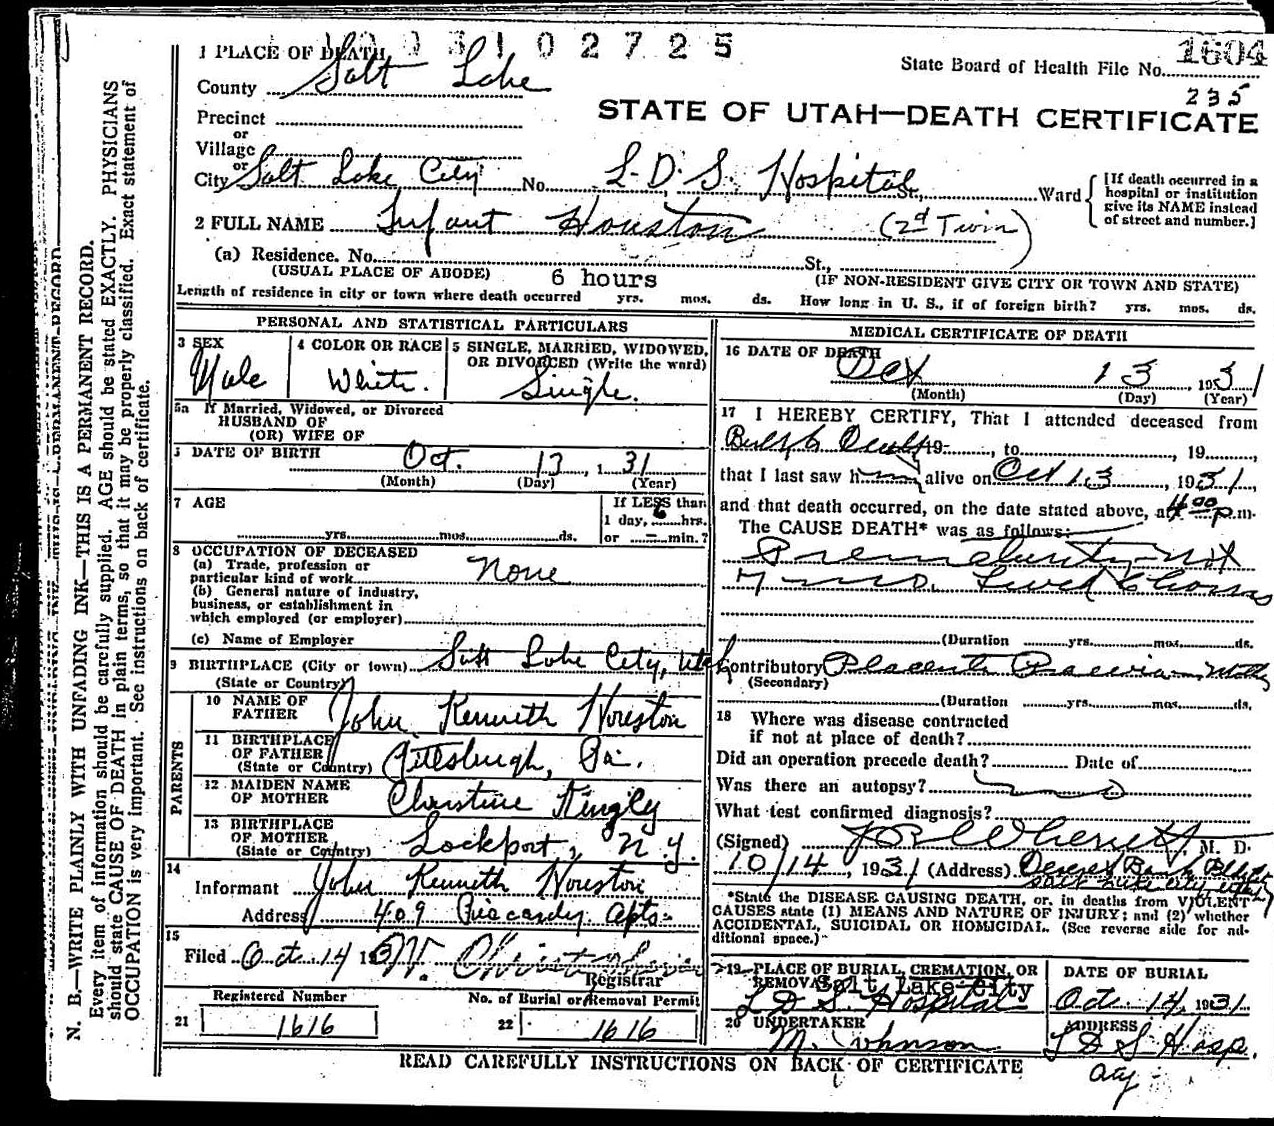 1003102725
1604
1 PLACE OF DEATH
State Board of Health File No.
County Salt Lake
235
STATE OF UTAH—DEATH CERTIFICATE
Precinct
or
Village
or
City Salt Lake City No. L.D.S. Hospital St., Ward
[If death occurred in a
hospital or institution
give its NAME instead
of street and number.]
2 FULL NAME Infant Houston (2d Twin)
(a) Residence. No. St.,
(USUAL PLACE OF ABODE) (IF NON-RESIDENT GIVE CITY OR TOWN AND STATE)
6 hours
Length of residence in city or town where death occurred yrs. mos. ds. How long in U. S., if of foreign birth? yrs. mos. ds.
PERSONAL AND STATISTICAL PARTICULARS
3 SEX
Male
4 COLOR OR RACE
White.
5 SINGLE, MARRIED, WIDOWED,
OR DIVORCED (Write the word)
Single.
5a If Married, Widowed, or Divorced
HUSBAND OF
(OR) WIFE OF
DATE OF BIRTH Oct. 13, 1 31
(Month) (Day) (Year)
7 AGE
yrs. mos. ds.
If LESS than
1 day, 6 hrs.
or — min.?
8 OCCUPATION OF DECEASED
(a) Trade, profession or
particular kind of work None
(b) General nature of industry,
business, or establishment in
which employed (or employer)
(c) Name of Employer
9 BIRTHPLACE (City or town) Salt Lake City, Utah
(State or Country)
PARENTS
10 NAME OF
FATHER John Kenneth Houston
11 BIRTHPLACE
OF FATHER Pittsburgh, Pa.
(State or Country)
12 MAIDEN NAME
OF MOTHER Christine
13 BIRTHPLACE
OF MOTHER Lockport, N.Y.
(State or Country)
14
Informant John Kenneth Houston
Address 409 Piccardy Apts.
15
Filed Oct 14 193
Registrar
Registered Number
21 1616
No. of Burial or Removal Permit
22 1616
MEDICAL CERTIFICATE OF DEATH
16 DATE OF DEATH
Oct 13, 1931
(Month) (Day) (Year)
17 I HEREBY CERTIFY, That I attended deceased from
Birth to Death 19, to 19
that I last saw him alive on Oct 13, 1931,
and that death occurred, on the date stated above, at 4:00 p.m.
The CAUSE DEATH* was as follows:
Prematurity—not
7 mo. Lived 6 hours
(Duration yrs. mos. ds.
Contributory Placenta Praevia Mother
(Secondary)
(Duration yrs. mos. ds.
18 Where was disease contracted
if not at place of death?
Did an operation precede death? Date of
Was there an autopsy? no
What test confirmed diagnosis?
(Signed) M. D.
10/14, 1931 (Address) Deseret Bank Bldg
Salt Lake City, Utah
*State the DISEASE CAUSING DEATH, or, in deaths from VIOLENT
CAUSES state (1) MEANS AND NATURE OF INJURY; and (2) whether
ACCIDENTAL, SUICIDAL OR HOMICIDAL. (See reverse side for ad-
ditional space.)
19 PLACE OF BURIAL, CREMATION, OR
REMOVAL Salt Lake City
L D S Hospital
DATE OF BURIAL
Oct. 14, 1931
20 UNDERTAKER
M. Johnson
ADDRESS
L D S Hosp.
City
READ CAREFULLY INSTRUCTIONS ON BACK OF CERTIFICATE
N. B.—WRITE PLAINLY WITH UNFADING INK—THIS IS A PERMANENT RECORD.
Every item of information should be carefully supplied. AGE should be stated EXACTLY. PHYSICIANS
should state CAUSE OF DEATH in plain terms, so that it may be properly classified. Exact statement of
OCCUPATION is very important. See instructions on back of certificate.